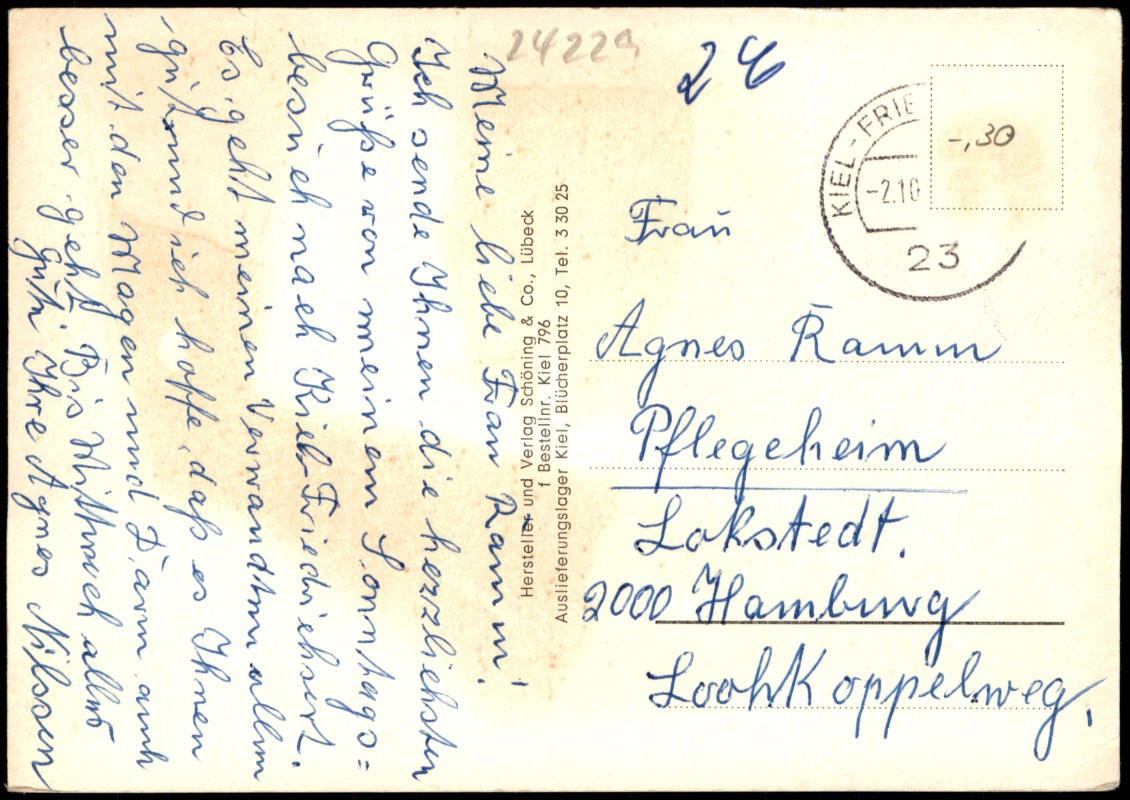 24229
24
Meine liebe Frau Ramm!
Ich sende Ihnen die herzlichsten
Grüße von meinem Sonntags=
besuch nach Kiel-Friedrichsort.
Es geht meinen Verwandten allen
gut und ich hoffe, daß es Ihnen
mit den Magen und Darm auch
besser geht. Bis Mittwoch alles
Gute Ihre Agnes Nilssen
Hersteller und Verlag Schöning & Co., Lübeck
f Bestellnr. Kiel 796
Auslieferungslager Kiel, Blücherplatz 10, Tel. 3 30 25
KIEL-FRIE
-2.10
23
-,30
Frau
Agnes Ramm
Pflegeheim
Lokstedt.
2000 Hamburg
LoohKoppelweg.